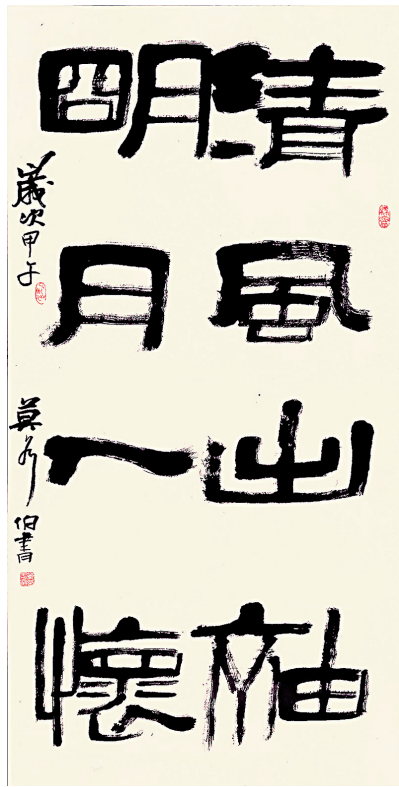 清風出袖
明月入懷
歲次甲午
莫伯書